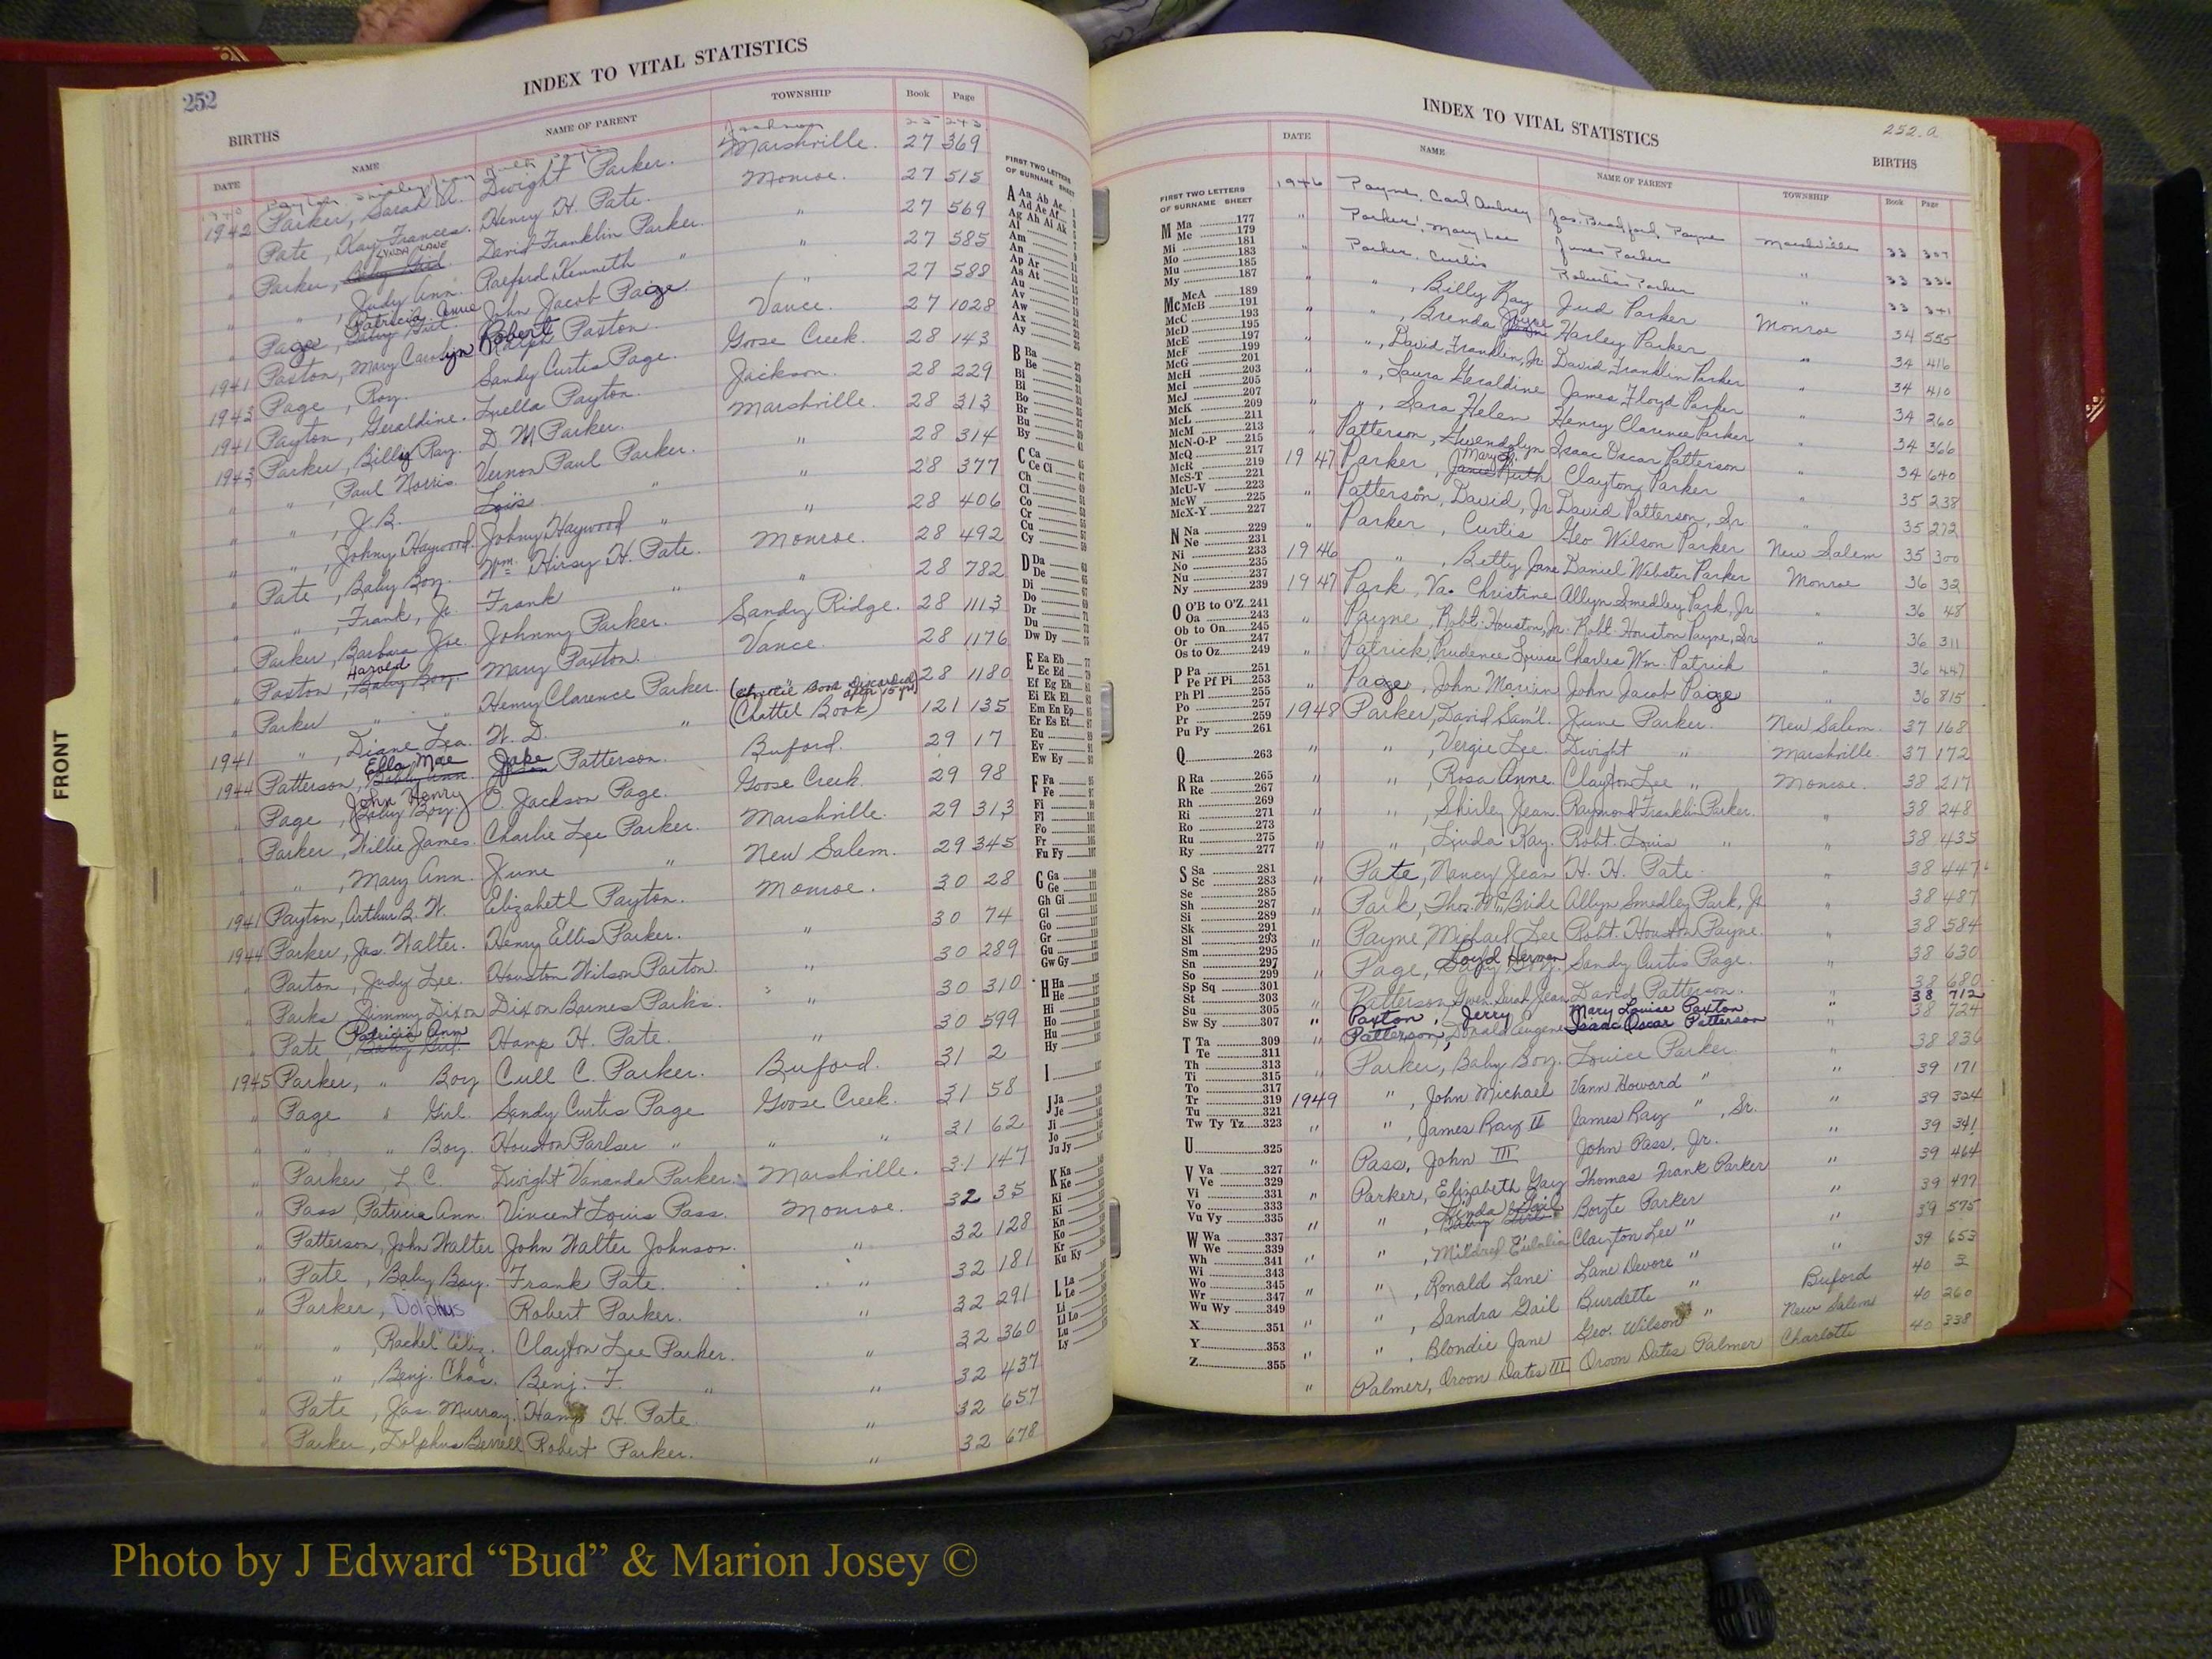 252
INDEX TO VITAL STATISTICS
BIRTHS
DATE NAME NAME OF PARENT TOWNSHIP Book Page
Jackson 25 243
1942 Parker, Sarah A. Dwight Parker. Marshville. 27 369
" Pate, Kay Frances. Henry H. Pate. Monroe. 27 515
" Parker, Baby Girl LYNDA LANE David Franklin Parker. " 27 569
" " , Judy Ann. Raeford Kenneth " " 27 585
" Page, Baby Girl. Patricia Annie John Jacob Paige. " 27 588
1941 Paxton, Mary Carolyn Ralph Robert Paxton. Vance. 27 1028
1943 Page, Roy. Sandy Curtis Page. Goose Creek. 28 143
1941 Payton, Geraldine. Luella Payton. Jackson. 28 229
1943 Parker, Billy Ray. D. M Parker. Marshville. 28 313
" " , Paul Norris. Vernon Paul Parker. " 28 314
" " , J. B. Lois " " 28 377
" " , Johny Haywood. Johny Haywood " " 28 406
" Pate, Baby Boy. Wm. Hirsy H. Pate. Monroe. 28 492
" " , Frank, Jr. Frank " " 28 782
" Parker, Barbara Joe. Johnny Parker. Sandy Ridge. 28 1113
" Paxton, Baby Boy. Harold Mary Paxton. Vance. 28 1176
" Parker " " Henry Clarence Parker. " 28 1180
1941 " , Diane Lea. W. D. " (Chattel Book) 121 135
1944 Patterson, Baby Ann Ella Mae Jake Patterson. Buford. 29 17
" Page, Baby Boy. John Henry O. Jackson Page. Goose Creek. 29 98
" Parker, Willie James. Charlie Lee Parker. Marshville. 29 313
" " , Mary Ann. June " New Salem. 29 345
1941 Payton, Arthur B. W. Elizabeth Payton. Monroe. 30 28
1944 Parker, Jas. Walter. Henry Ellis Parker. " 30 74
" Paxton, Judy Lee. Houston Wilson Paxton. " 30 289
" Parks Jimmy Dixon Dixon Barnes Parks. " 30 310
" Pate, Baby Girl. Patricia Ann Hamp H. Pate. " 30 599
1945 Parker, " Boy Cull C. Parker. Buford. 31 2
" Page " Girl. Sandy Curtis Page Goose Creek. 31 58
" " " Boy. Houston Parlser " " " 31 62
" Parker, L. C. Dwight Vananda Parker. Marshville. 31 147
" Pass, Patricia Ann. Vincent Louis Pass. Monroe. 32 35
" Patterson, John Walter John Walter Johnson. " 32 128
" Pate, Baby Boy. Frank Pate. " 32 181
" Parker, Dolphus Robert Parker. " 32 291
" " , Rachel Eliz. Clayton Lee Parker. " 32 360
" " , Benj. Chas. Benj. F. " " 32 437
" Pate, Jas. Murray. Hamp H. Pate. " 32 657
" Parker, Dolphus Berrell Robert Parker. " 32 678
FRONT
FIRST TWO LETTERS
OF SURNAME SHEET
A Aa Ab Ac
Ad Ae Af
Ag Ah Ai Ak
Al
Am
An
Ap Ar
As At
Au
Av
Aw
Ax
Ay
B Ba
Be
Bi
Bl
Bo
Br
Bu
By
C Ca
Ce Ci
Ch
Cl
Co
Cr
Cu
Cy
D Da
De
Di
Do
Dr
Du
Dw Dy
E Ea Eb
Ec Ed
Ef Eg Eh
Ei Ek El
Em En Ep
Er Es Et
Eu
Ev
Ew Ey
F Fa
Fe
Fi
Fl
Fo
Fr
Fu Fy
G Ga
Ge
Gh Gi
Gl
Go
Gr
Gu
Gw Gy
H Ha
He
Hi
Ho
Hu
Hy
I
J Ja
Je
Ji
Jo
Ju Jy
K Ka
Ke
Ki
Kl
Kn
Ko
Kr
Ku Ky
L La
Le
Li
Ll Lo
Lu
Ly
INDEX TO VITAL STATISTICS
252.a
BIRTHS
DATE NAME NAME OF PARENT TOWNSHIP Book Page
FIRST TWO LETTERS
OF SURNAME SHEET
M Ma 177
Me 179
Mi 181
Mo 183
Mu 185
My 187
Mc McA 189
McB 191
McC 193
McD 195
McE 197
McF 199
McG 201
McH 203
McI 205
McJ 207
McK 209
McL 211
McM 213
McN-O-P 215
McQ 217
McR 219
McS-T 221
McU-V 223
McW 225
McX-Y 227
N Na 229
Ne 231
Ni 233
No 235
Nu 237
Ny 239
O O'B to O'Z 241
Oa 243
Ob to On 245
Or 247
Os to Oz 249
P Pa 251
Pe Pf Pi 253
Ph Pl 255
Po 257
Pr 259
Pu Py 261
Q 263
R Ra 265
Re 267
Rh 269
Ri 271
Ro 273
Ru 275
Ry 277
S Sa 281
Sc 283
Se 285
Sh 287
Si 289
Sk 291
Sl 293
Sm 295
Sn 297
So 299
Sp Sq 301
St 303
Su 305
Sw Sy 307
T Ta 309
Te 311
Th 313
Ti 315
To 317
Tr 319
Tu 321
Tw Ty Tz 323
U 325
V Va 327
Ve 329
Vi 331
Vo 333
Vu Vy 335
W Wa 337
We 339
Wh 341
Wi 343
Wo 345
Wr 347
Wu Wy 349
X 351
Y 353
Z 355
1946 Payne, Carl Aubrey Jas. Bradford Payne Marshville 33 307
" Parker, Mary Lee James Parker " 33 336
" Parker, Curtis Parker " 33 341
" " , Billy Ray Jud Parker Monroe 34 555
" " , Brenda Joyce Harley Parker " 34 416
" " , David Franklin, Jr. David Franklin Parker " 34 410
" " , Laura Geraldine James Floyd Parker " 34 260
" " , Sara Helen Henry Clarence Parker " 34 366
" Patterson, Gwendolyn Isaac Oscar Patterson " 34 640
1947 Parker, Janet Ruth Mary Clayton Parker " 35 238
" Patterson, David, Jr David Patterson, Sr. " 35 272
" Parker, Curtis Geo Wilson Parker New Salem 35 300
1946 " , Betty Jane Daniel Webster Parker Monroe 36 32
1947 Park, Va. Christine Allyn Smedley Park, Jr " 36 48
" Payne, Robt. Houston, Jr. Robt. Houston Payne, Sr " 36 311
" Patrick, Prudence Louise Charles Wm. Patrick " 36 447
" Page, John Marvin John Jacob Paige " 36 815
1948 Parker, David Sam'l. June Parker. New Salem. 37 168
" " , Vergie Lee. Dwight " Marshville. 37 172
" " , Rosa Anne. Clayton Lee " Monroe. 38 217
" " , Shirley Jean. Raymond Franklin Parker. " 38 248
" " , Linda Kay. Robt. Louis " " 38 435
" Pate, Nancy Jean H. H. Pate. " 38 447
" Park, Thos. McBride Allyn Smedley Park, Jr " 38 487
" Payne, Michael Lee Robt. Houston Payne. " 38 584
" Page, Baby Boy. Loyd Herman Sandy Curtis Page. " 38 630
" Patterson, Gwen. Sarah Jean David Patterson. " 38 680
" Paxton, Jerry Mary Louise Paxton " 38 712
" Patterson, Donald Eugene Isaac Oscar Patterson " 38 724
Parker, Baby Boy. Louice Parker. " 38 836
1949 " , John Michael Vann Howard " " 39 171
" " , James Ray II James Ray " , Sr. " 39 324
" Pass, John III John Pass, Jr. " 39 341
" Parker, Elizabeth Gay Thomas Frank Parker " 39 464
" " , Baby Girl Linda Gail Boyte Parker " 39 477
" " , Mildred Eulalia Clayton Lee " " 39 575
" " , Ronald Lane Lane Devore " " 39 653
" " , Sandra Gail Burdette " Buford 40 3
" " , Blondie Jane Geo. Wilson " New Salem 40 260
" Palmer, Oroon Dates III Oroon Dates Palmer Charlotte 40 338
Photo by J Edward “Bud” & Marion Josey ©